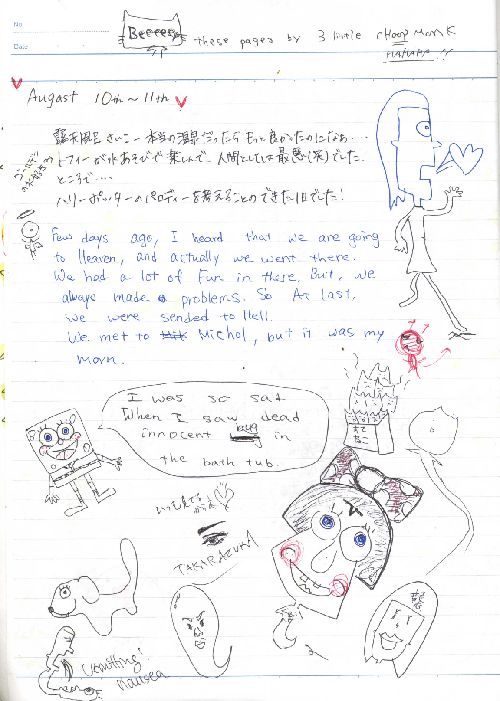 No.
Date
Beeeees
these pages by 3 little cHeap Monk
HAHAHA!!
August 10th~11th
露天風呂さいこー 本当の温泉だったらもっと良かったのになぁ...
トフィーが水あそびで楽しんで、人間としては最悪(笑)でした。
ところで....
ハリーポッターのパロディーを考えることのできた1日でした!
Few days ago, I heard that we are going
to Heaven, and actually we went there.
We had a lot of Fun in there. But, we
always made problems. So At last,
we were sended to Hell.
We met to Michol, but it was my
mom.
I was so sad
When I saw dead
innocent bug in
the bath tub.
いつも見てるからね
TAKARAZUKA
Vomitting!
Nausea